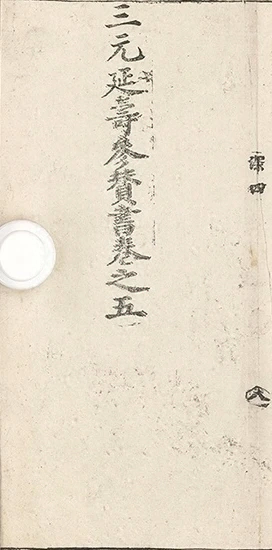 三元延壽參賛書卷之五
深四